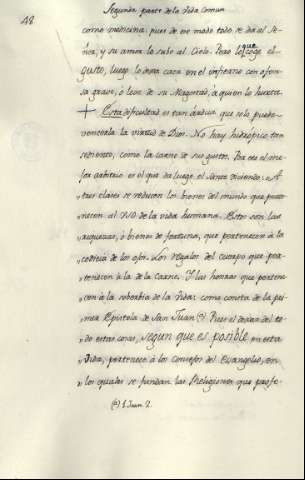 48
Segunda parte de la Vida Comun
como medicina: pues de ese modo todo se da al Se-
ñor, y su amor lo sube al Cielo. Pero lo que coge el
gusto, luego lo da caza en el infierno con ofen-
sa grave, ò leve de su Magestad, a quien lo hurta.
+ Esta dificultad es tan árdua, que solo puede
vencerla la virtud de Dios. No hay hidropico tan
sediento, como la carne de su gusto. Por eso el me-
jor arbitrio es el que da luego el Santo diciendo: „A
„tres clases se reducen los bienes del mundo que perte-
„necen al uso de la vida humana. Estos son las
„riquezas, ò bienes de fortuna, que pertenecen à la
„codicia de los ojos. Los regalos del cuerpo que per-
„tenecen a la de la Carne. Y las honras que pertene-
„cen à la soberbia de la Vida: como consta de la pri-
„mera Epistola de San Juan (a) Pues el dexar del to-
„do estas cosas, segun que es posible en esta
„Vida, pertenece à los Consejos del Evangelio, en
„los quales se fundan las Religiones que profe-
(a) 1 Juan. 2.